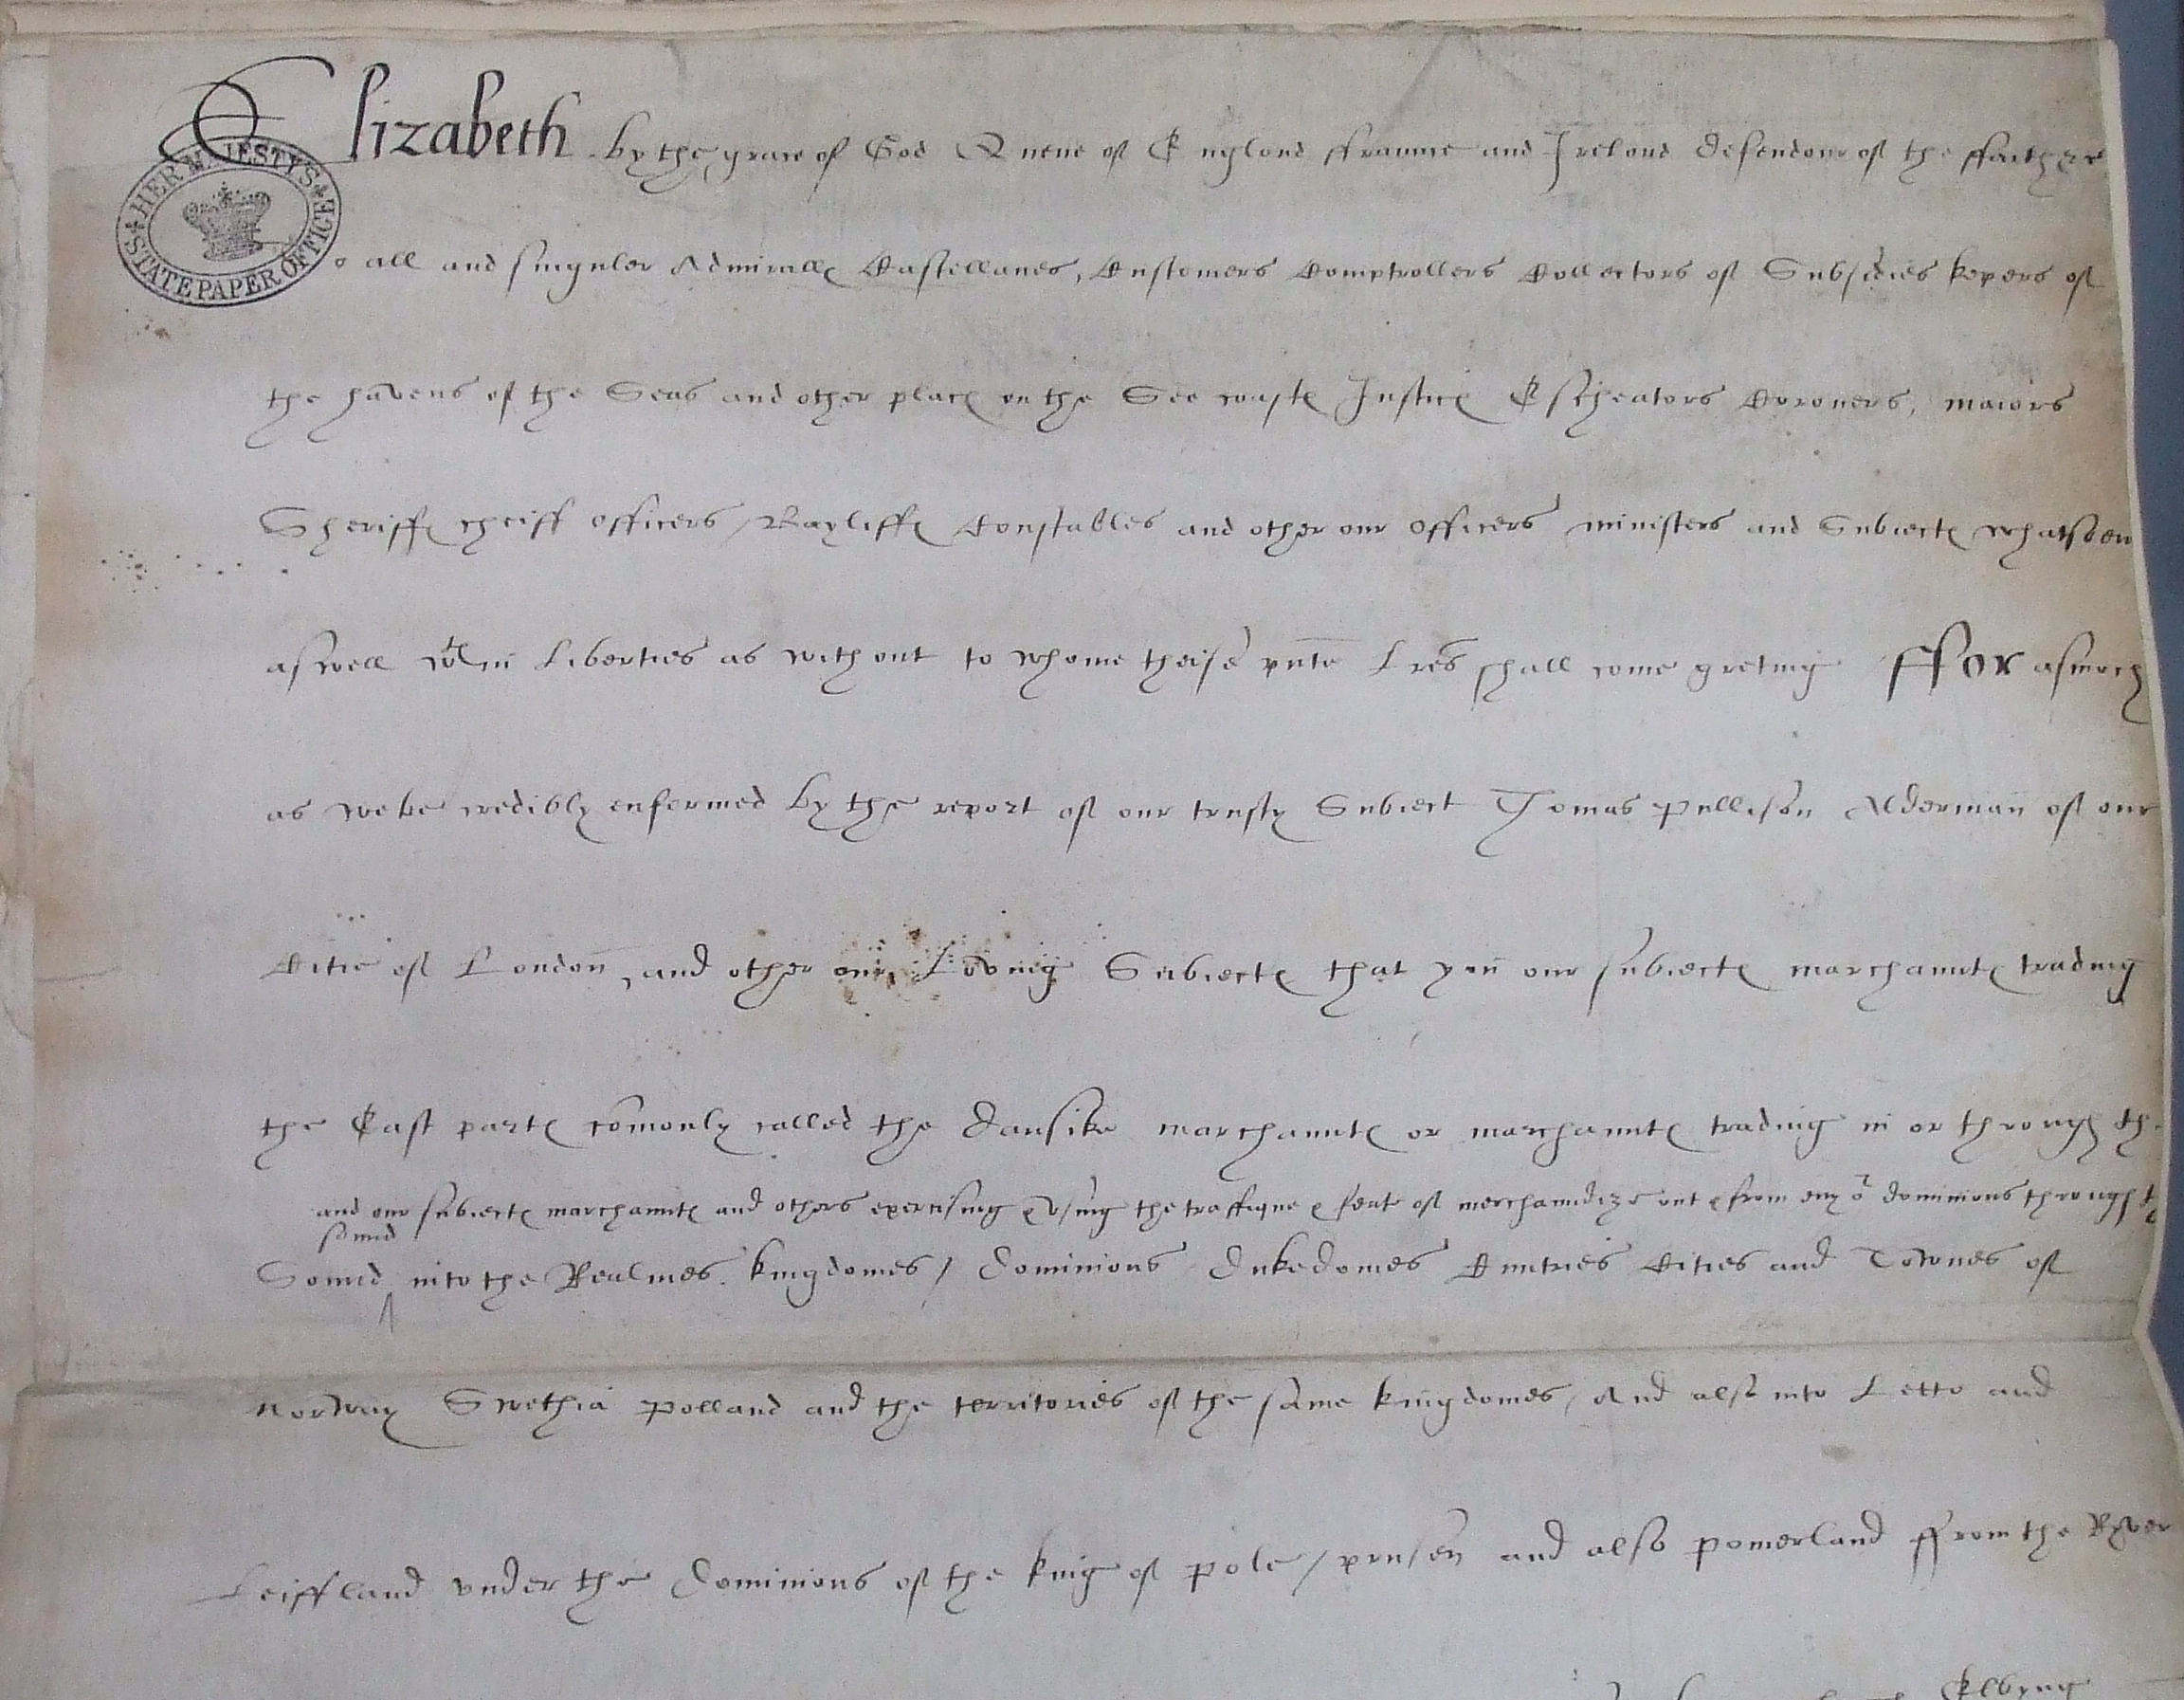 Elizabeth by the grace of God Quene of Englond ffraunce and Irelond defendour of the ffaith &c
HER MAJESTY'S STATE PAPER OFFICE
o all and singuler Admirall℮ Castellanes, Customers Comptrollers Collectors of Subsidies kepers of
the havens of the Seas and other plac℮ on the See coast℮ Justic℮ Escheators Coroners, maiors
Sheriff℮ cheiff officers / Bayliff℮ Constables and other our officers ministers and Subiect℮ whatsoeu
aswell wthin Liberties as without to whome theise pnte Lres shall come greting ffor asmoch
as we be credibly enformed by the report of our trusty Subiect Thomas Pullison Alderman of our
Citie of London, and other our Loving Subiect℮ that you our subiect℮ marchaunt℮ trading
the East part℮ comonly called the dansike marchaunt℮ or marchaunt℮ trading in or through th
and our subiect℮ marchaunt℮ and others exercising & vsing the traffique & feate of merchaundize out & from eny or dominions through the
sound
Sound into the Realmes kingdomes / Dominions Dukedomes Cuntries Cities and Townes of
Norway Swethia Polland and the territories of the same kingdomes / And also into Letto and
Leiffland vnder the Dominions of the king of Pole / prusen and also pomerland ffrom the Ryver
Elbyng